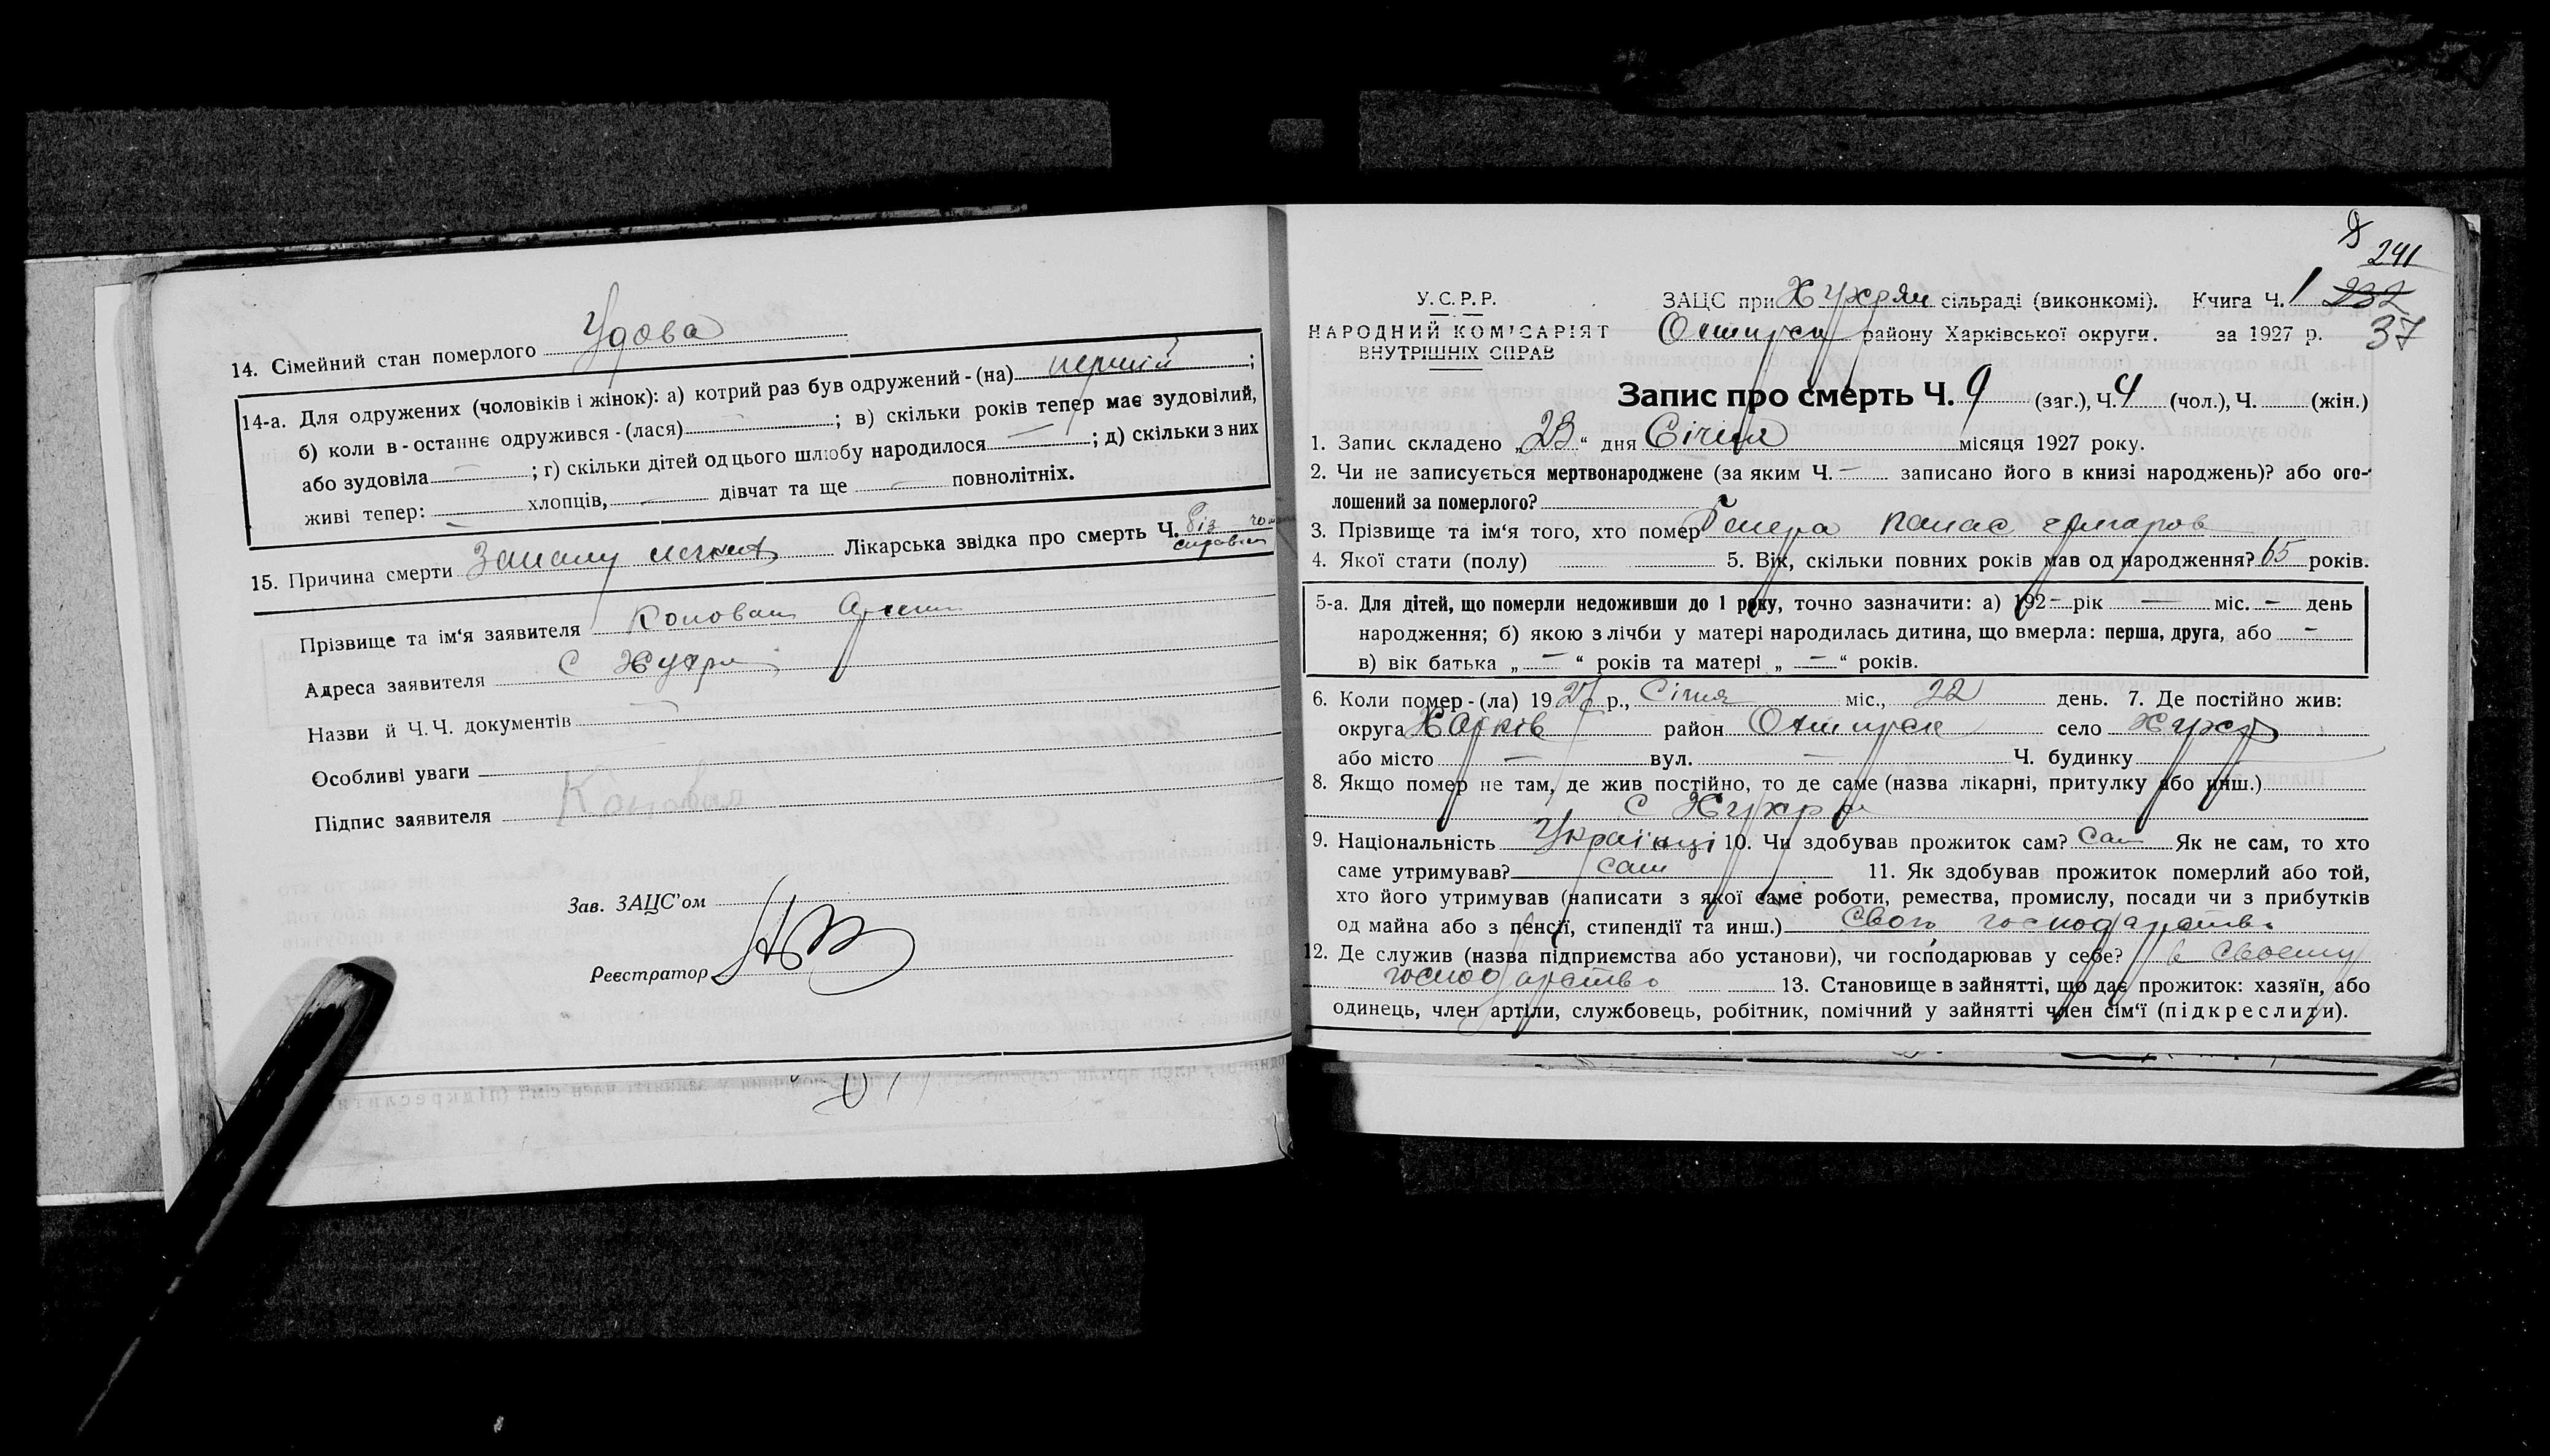 14. Сімейний стан померлого Удова
14-а. Для одружених (чоловіків і жінок): а) котрий раз був одружений - (на) перший ;
б) коли в - останнє одружився - (лася) — ; в) скільки років тепер має зудовілий,
або зудовіла — ; г) скільки дітей од цього шлюбу народилося — ; д) скільки з них
живі тепер: — хлопців, — дівчат та ще — повнолітніх.
15. Причина смерти Лікарська звідка про смерть Ч. Без
Прізвище та ім‘я заявителя Коновал
Адреса заявителя С Хухри
Назви й Ч. Ч. документів —
Особливі уваги
Підпис заявителя Коновал
Зав. ЗАЦС'ом
Реєстратор
241
У. С. Р. Р.
НАРОДНИЙ КОМІСАРІЯТ
ВНУТРІШНІХ СПРАВ
ЗАЦС при Хухрян сільраді (виконкомі). Книга Ч. 1 232
району Харківської округи. за 1927 р. 37
Запис про смерть Ч. 9 (заг.), Ч. 4 (чол.), Ч. (жін.)
1. Запис складено „23“ дня Січня місяця 1927 року.
2. Чи не записується мертвонароджене (за яким Ч. — записано його в книзі народжень)? або ого-
лошений за померлого?
3. Прізвище та ім‘я того, хто помер Панас
4. Якої стати (полу) 5. Вік, скільки повних років мав од народження? 65 років.
5-а. Для дітей, що померли недоживши до 1 року, точно зазначити: а) 192 — рік — міс. — день
народження; б) якою з лічби у матері народилась дитина, що вмерла: перша, друга, або —
в) вік батька „ — “ років та матері „ — “ років.
6. Коли помер - (ла) 1927 р., Січня міс., 22 день. 7. Де постійно жив:
округа Харків район село Хухр
або місто — вул. — Ч. будинку
8. Якщо помер не там, де жив постійно, то де саме (назва лікарні, притулку або инш.)
С Хухри
9. Національність Українці 10. Чи здобував прожиток сам? Сам Як не сам, то хто
саме утримував? сам 11. Як здобував прожиток померлий або той,
хто його утримував (написати з якої саме роботи, ремества, промислу, посади чи з прибутків
од майна або з пенсії, стипендії та инш.) Свого господарства
12. Де служив (назва підприемства або установи), чи господарював у себе? в своему
господарство 13. Становище в зайнятті, що дає прожиток: хазяїн, або
одинець, член артіли, службовець, робітник, помічний у зайнятті член сім‘ї (підкреслити).